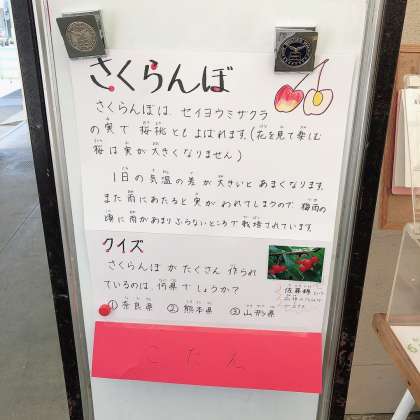 さくらんぼ
さくらんぼは、セイヨウミザクラ
の実で桜桃ともよばれます。(花を見て楽しむ
桜は実が大きくなりません)
1日の気温の差が大きいとあまくなります。
また雨にあたると実がわれてしまうので梅雨の
頃に雨があまりふらないところで栽培されています。
クイズ
さくらんぼがたくさん作られ
ているのは何県でしょうか?
①奈良県 ②熊本県 ③山形県
佐藤錦
こたえ